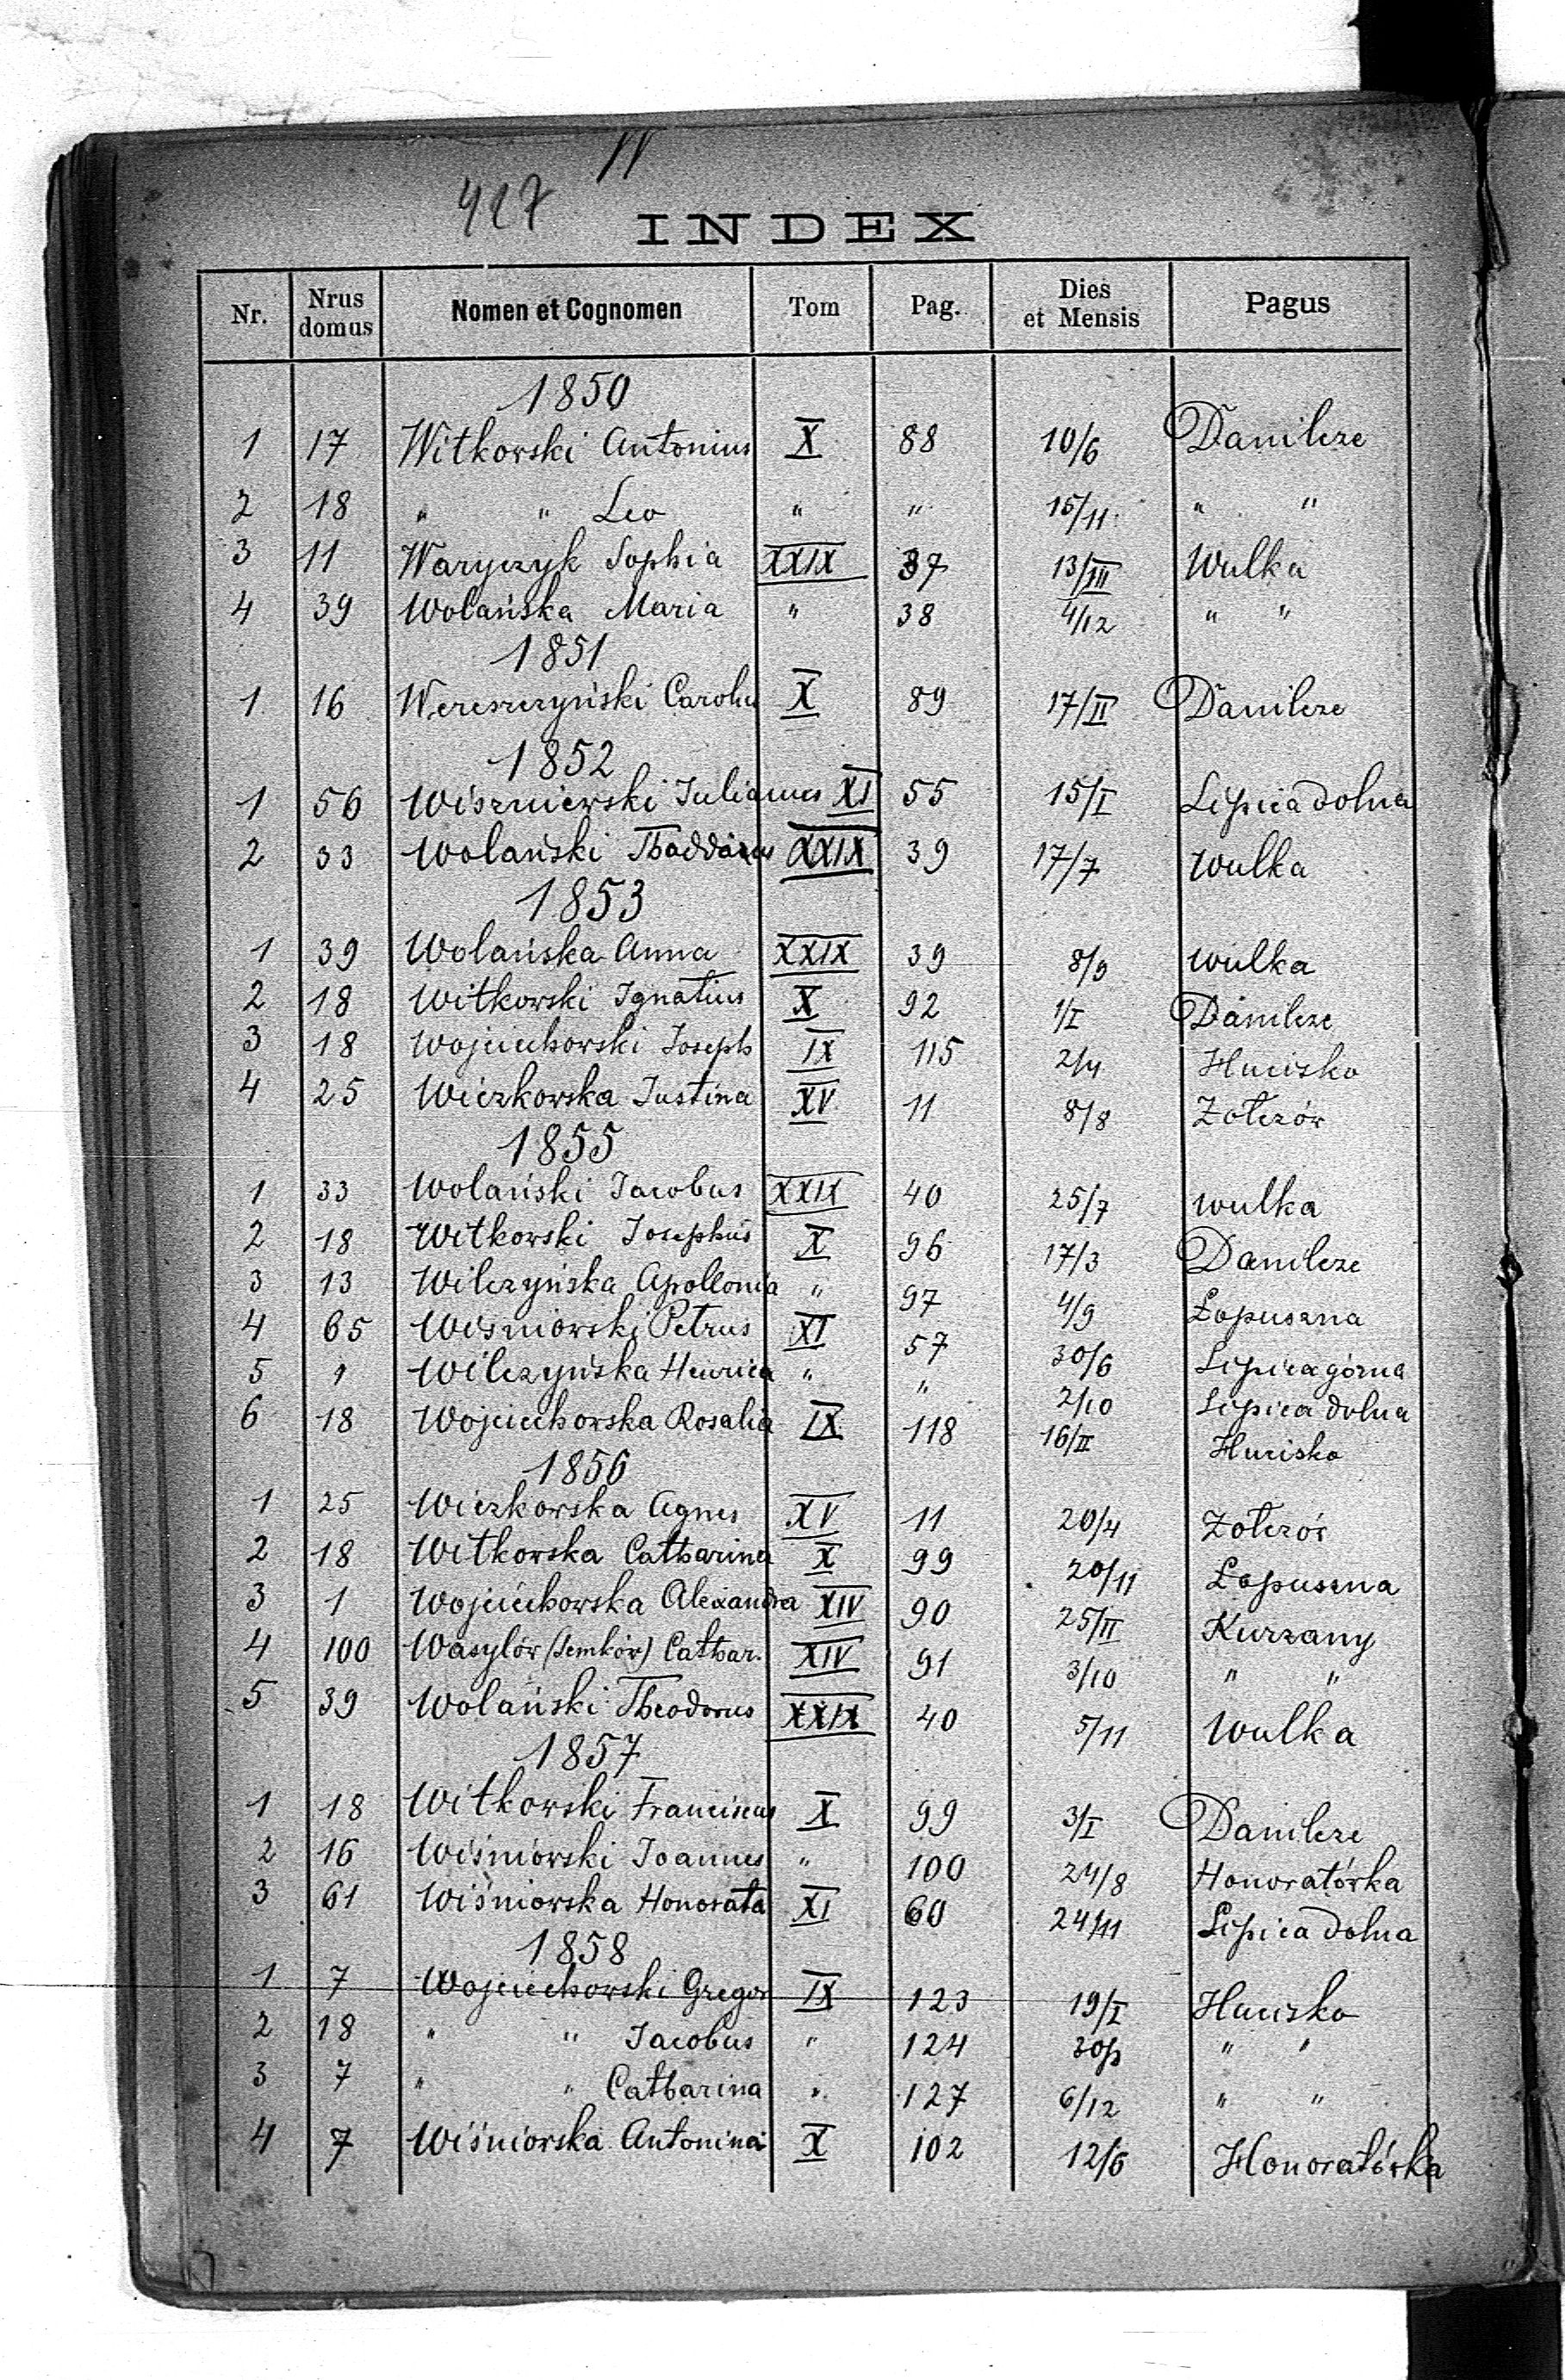 W
427
INDEX
Nr. Nrus domus Nomen et Cognomen Tom Pag. Dies et Mensis Pagus
1850
1 17 Witkowski Antonius X 88 10/6 Danilcze
2 18 " " Leo " " 15/11 " "
3 11 Waryczyk Sophia XXIX 37 13/III Wulka
4 39 Wolańska Maria " 38 4/12 " "
1851
1 16 Wereszczyński Carolus X 89 17/II Danilcze
1852
1 56 Wiszniewski Julianus XI 55 15/I Lipica dolna
2 33 Wolański Thaddäus XXIX 39 17/7 Wulka
1853
1 39 Wolańska Anna XXIX 39 8/9 Wulka
2 18 Witkowski Ignatius X 92 1/I Danilcze
3 18 Wojciechowski Joseph IX 115 2/4 Hucisko
4 25 Wiczkowska Justina XV 11 8/8 Zołczów
1855
1 33 Wolański Jacobus XXIX 40 25/7 Wulka
2 18 Witkowski Josephus X 96 17/3 Danilcze
3 13 Wilczyńska Apollonia " 97 4/9 Łopuszna
4 65 Wiśniowski Petrus XI 57 30/6 Lipica górna
5 1 Wilczyńska Henrica " " 2/10 Lipica dolna
6 18 Wojciechowska Rosalia IX 118 16/II Hucisko
1856
1 25 Wiczkowska Agnes XV 11 20/4 Zołczów
2 18 Witkowska Catharina X 99 20/11 Łopuszna
3 1 Wojciechowska Alexandra XIV 90 25/II Kurzany
4 100 Wasylów (Semków) Cathar. XIV 91 3/10 " "
5 39 Wolański Theodorus XXIX 40 5/11 Wulka
1857
1 18 Witkowski Franciscus X 99 3/I Danilcze
2 16 Wiśniowski Joannes " 100 24/8 Honoratówka
3 61 Wiśniowska Honorata XI 60 24/11 Lipica dolna
1858
1 7 Wojciechowski Gregor IX 123 19/I Hucisko
2 18 " " Jacobus " 124 " "
3 7 " " Catharina " 127 6/12 " "
4 7 Wiśniowska Antonina X 102 12/6 Honoratówka